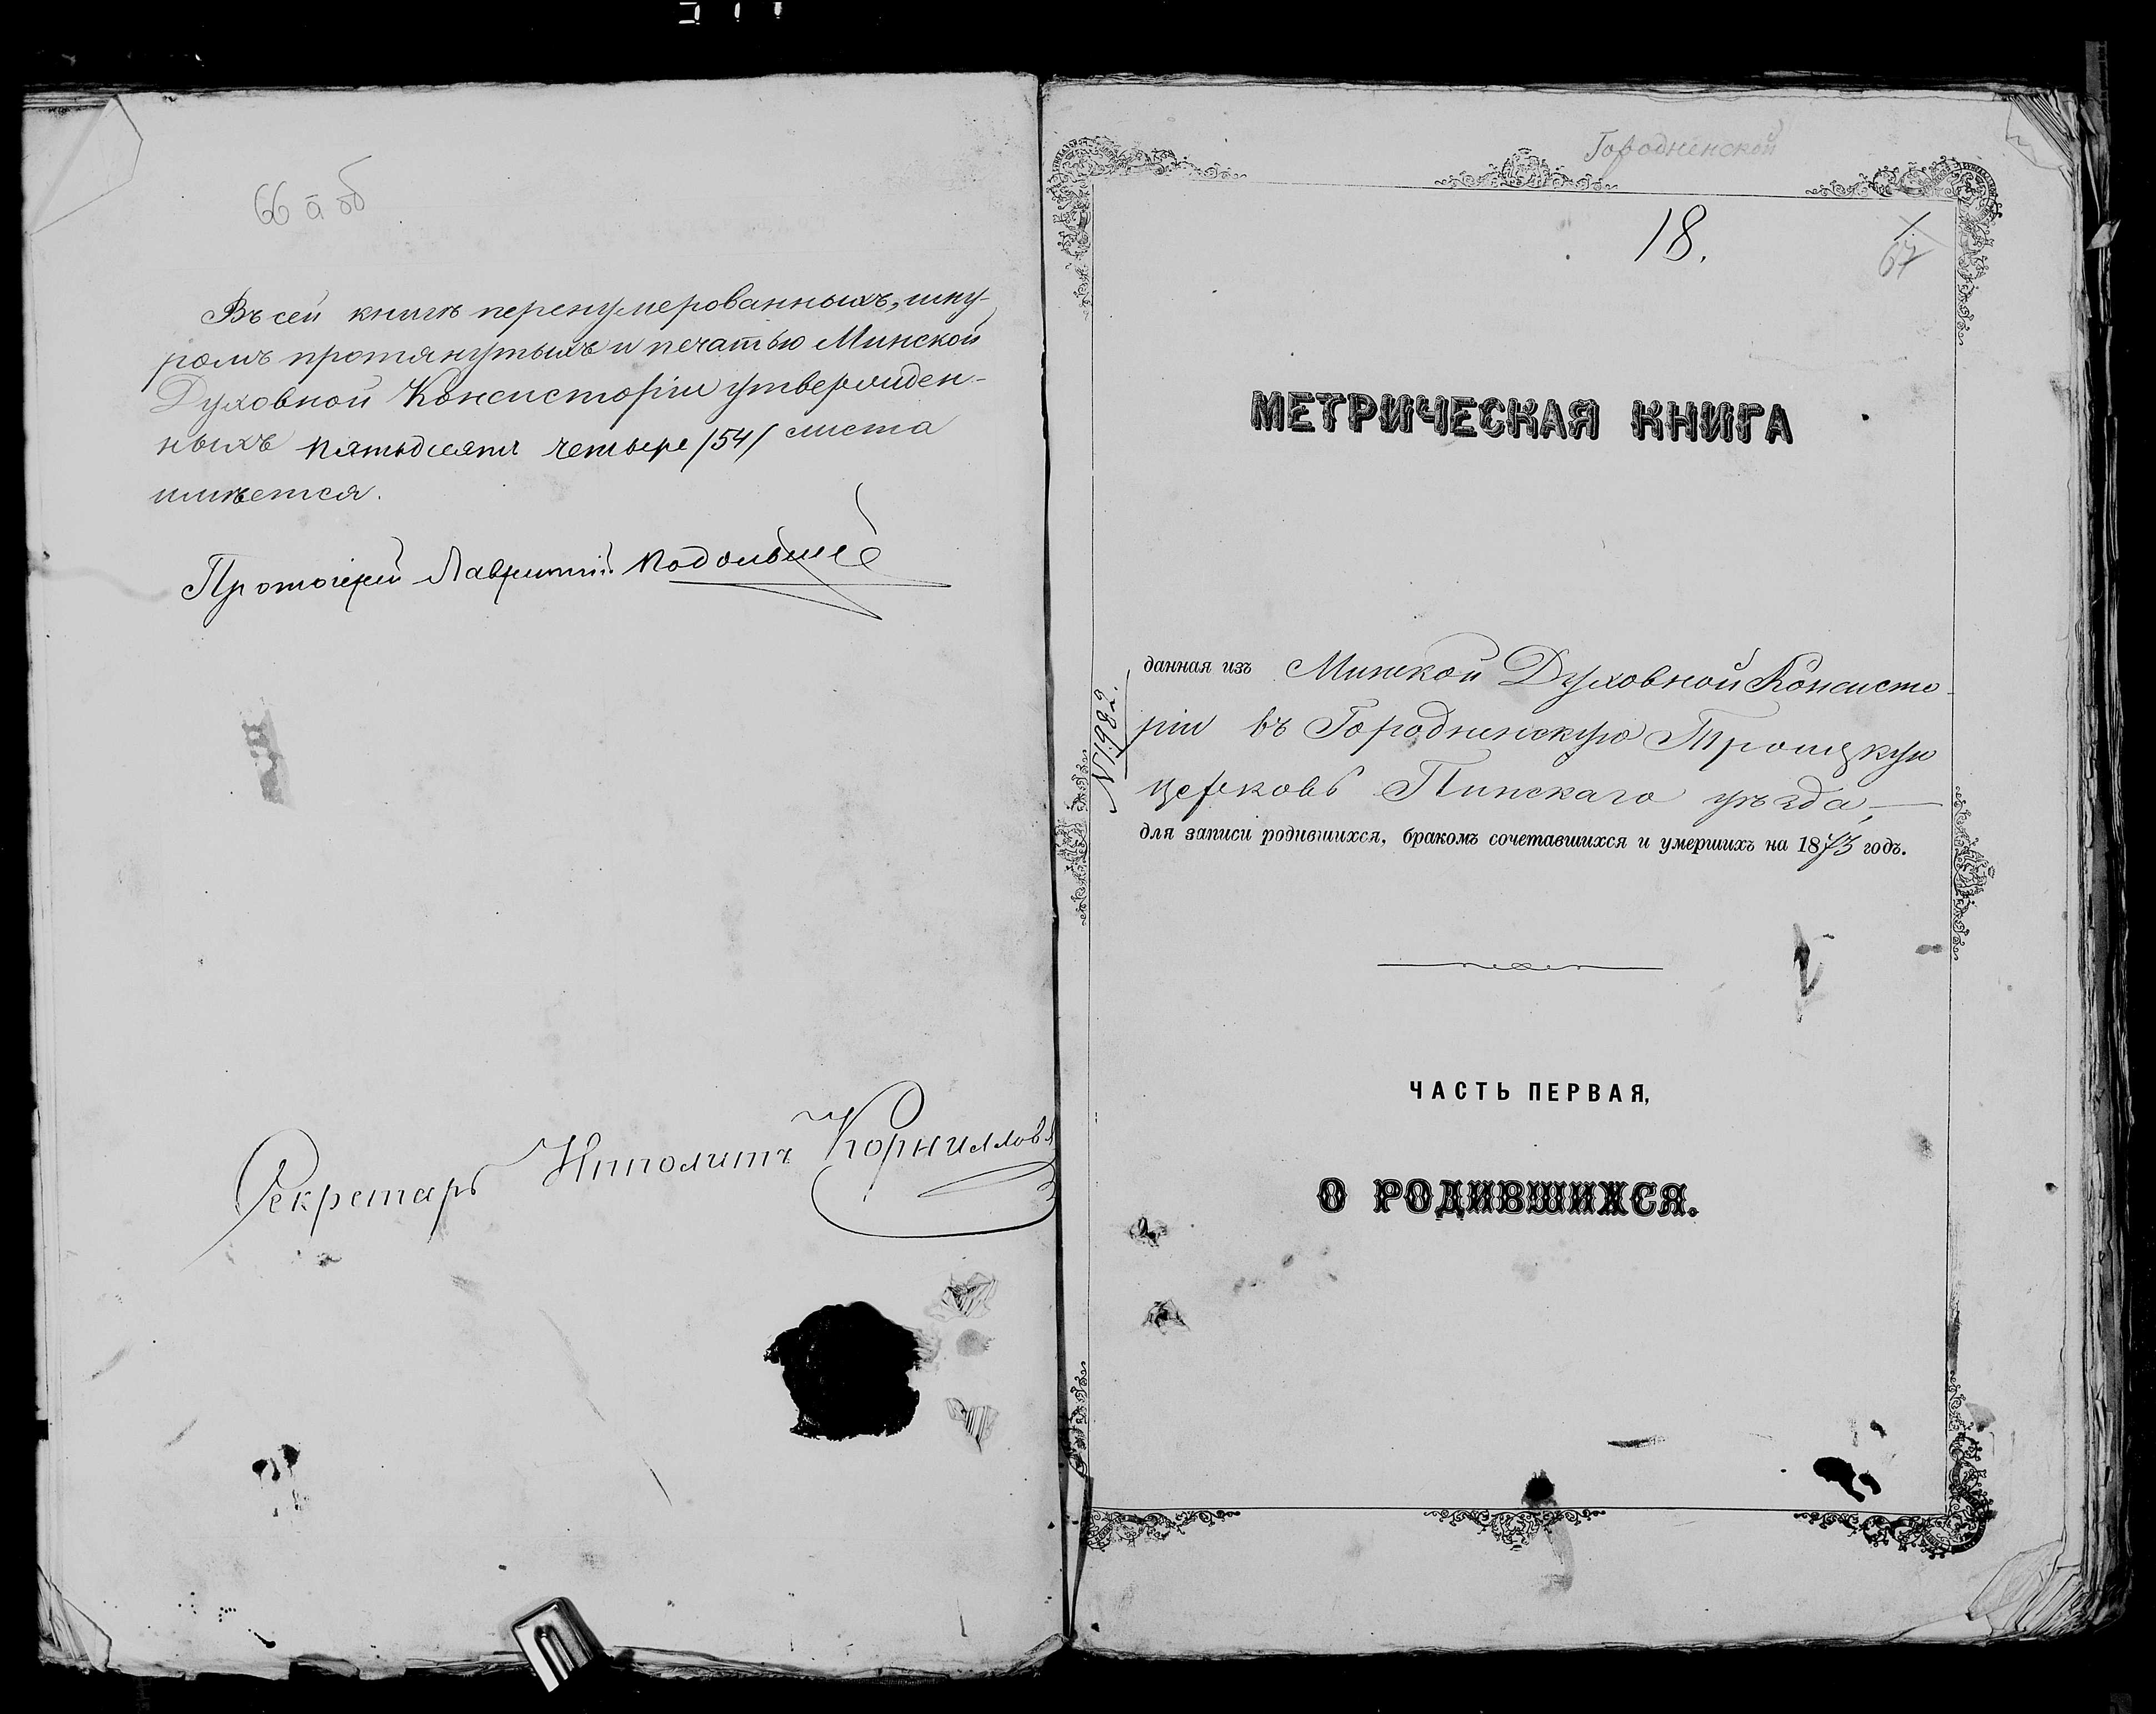 66 а об
Въ сей книгѣ перенумерованныхъ, шну-
ромъ протянутыхъ и печатью Минской
Духовной Консисторіи утвержден-
ныхъ пятьдесятъ четыре /54/ листа
имѣется.
Протоіерей Лаврентій
Секретарь Ипполитъ Корнилловъ
Городненской
18.
67
МЕТРИЧЕСКАЯ КНИГА
данная изъ Минской Духовной Консисто-
ріи въ Городненскую Троицкую
церковь Пинскаго уѣзда,
для записи родившихся, бракомъ сочетавшихся и умершихъ на 1873 годъ.
№ 1982.
ЧАСТЬ ПЕРВАЯ,
О РОДИВШИХСЯ.